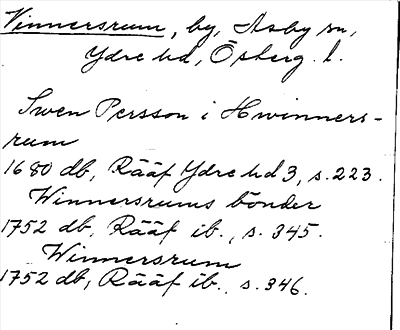 Vinnersrum, by, Asby sn,
Ydre hd, Österg. l.
Swen Persson i Hwinners-
rum
1680 db, Rääf Ydre hd 3, s. 223.
Winnersrums bönder
1752 db, Rääf ib., s. 345.
Winnersrum
1752 db, Rääf ib., s. 346.